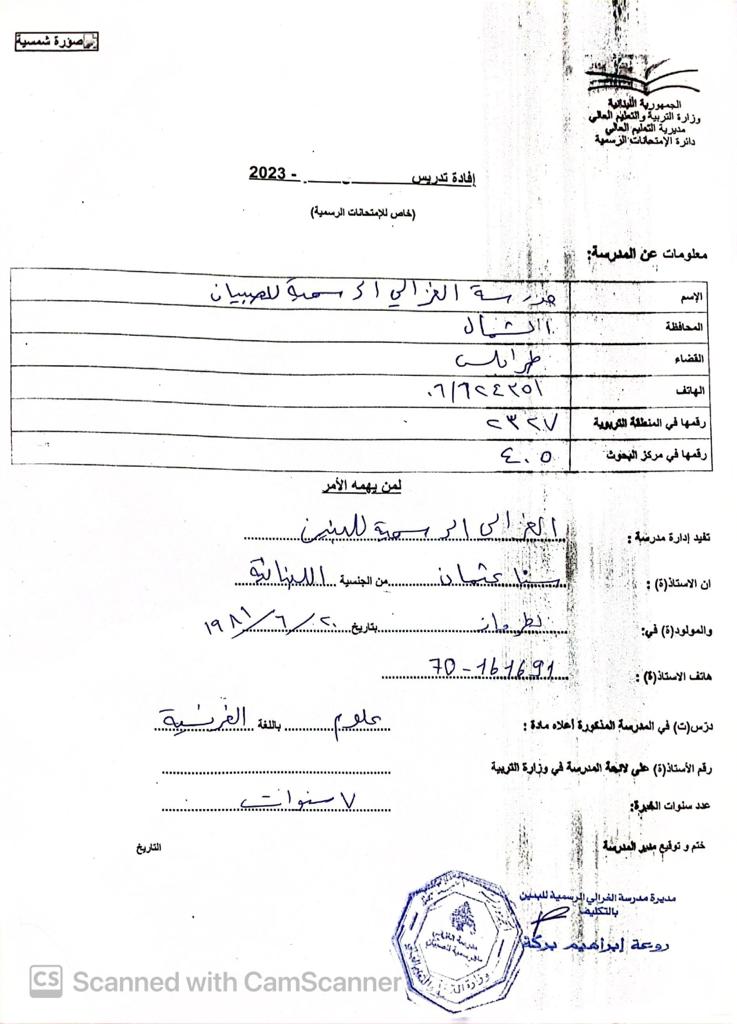 صورة شمسية
الجمهورية اللبنانية
وزارة التربية والتعليم العالي
مديرية التعليم العالي
دائرة الإمتحانات الرسمية
إفادة تدريس ـــــــــ - 2023
(خاص للإمتحانات الرسمية)
معلومات عن المدرسة:
الإسم مدرسة الغزالي الرسمية للصبيان
المحافظة الشمال
القضاء طرابلس
الهاتف ٠٦/٦٢٤٣٥١
رقمها في المنطقة التربوية ٢٣٢٧
رقمها في مركز البحوث ٤٠٥
لمن يهمه الأمر
تفيد إدارة مدرسة : الغزالي الرسمية للبنين
ان الاستاذ(ة) : سنا عثمان من الجنسية اللبنانية
والمولود(ة) في: بتاريخ ٢٠/٦/١٩٨١
هاتف الاستاذ(ة) : 70-161691
درّس(ت) في المدرسة المذكورة أعلاه مادة : علوم باللغة الفرنسية
رقم الأستاذ(ة) على لائحة المدرسة في وزارة التربية
عدد سنوات الخبرة: ٧ سنوات
ختم و توقيع مدير المدرسة التاريخ
مديرة مدرسة الغزالي الرسمية للبنين
بالتكليف
روعة ابراهيم بركة
CS Scanned with CamScanner